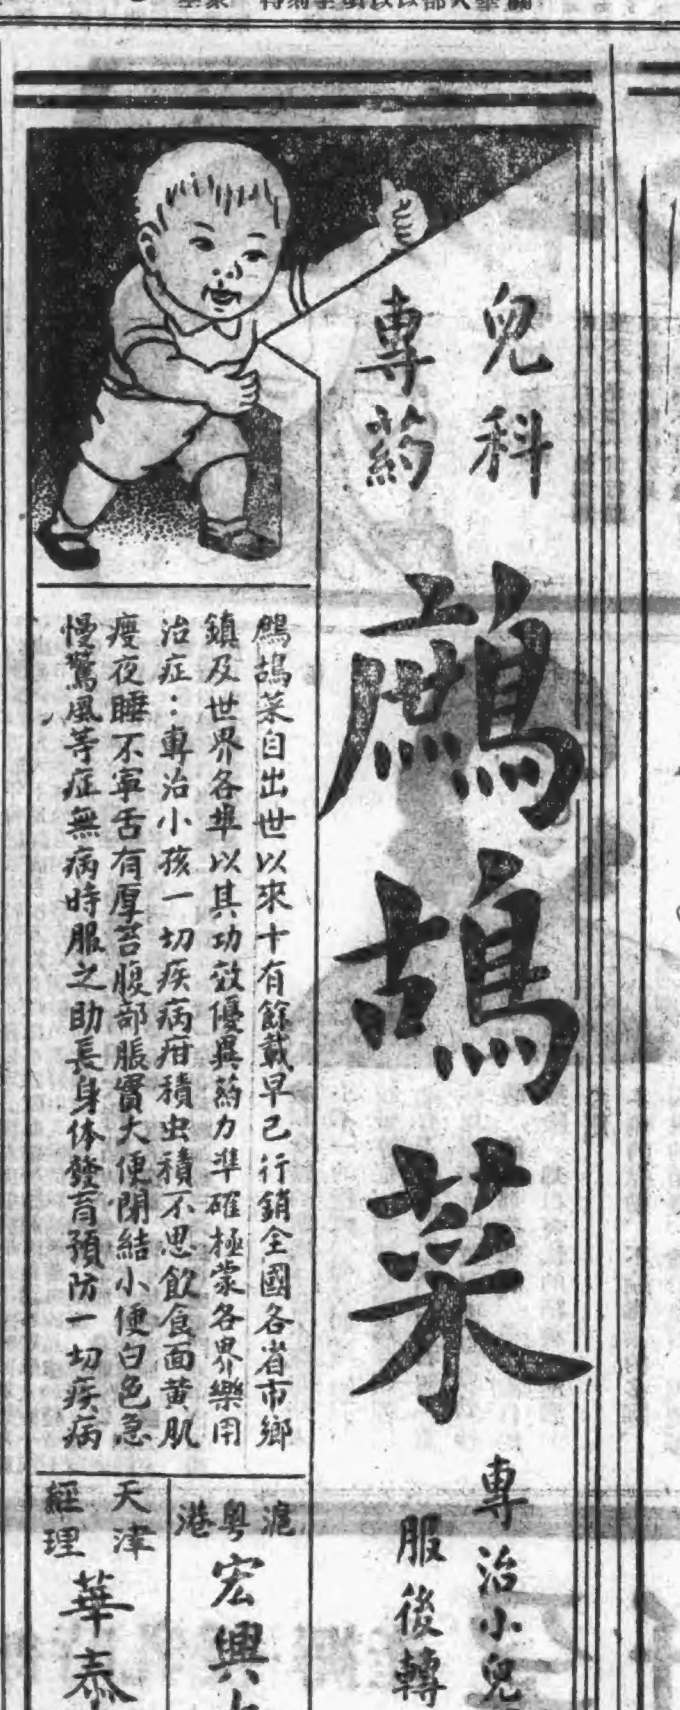 兒科
專药
鷓鴣菜
專治小兒
服後轉
鷓鴣菜自出世以來十有餘載早已行銷全國各省市鄉
鎮及世界各埠以其功效優異药力準確極蒙各界樂用
治症：專治小孩一切疾病疳積虫積不思飲食面黃肌
瘦夜睡不寧舌有厚苔腹部脹實大便閉結小便白色急
慢驚風等症無病時服之助長身体發育預防一切疾病
滬
粵
港
宏興
天津
經理
華泰